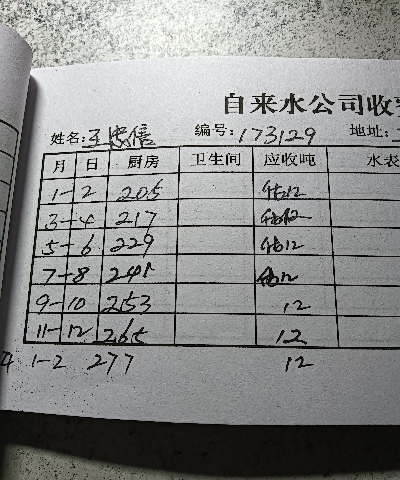 自来水公司收
姓名:王忠信 编号:173129 地址:
月 日 厨房 卫生间 应收吨 水表
1-2 205 12
3-4 217 12
5-6 229 12
7-8 241 12
9-10 253 12
11-12 265 12
1-2 277 12